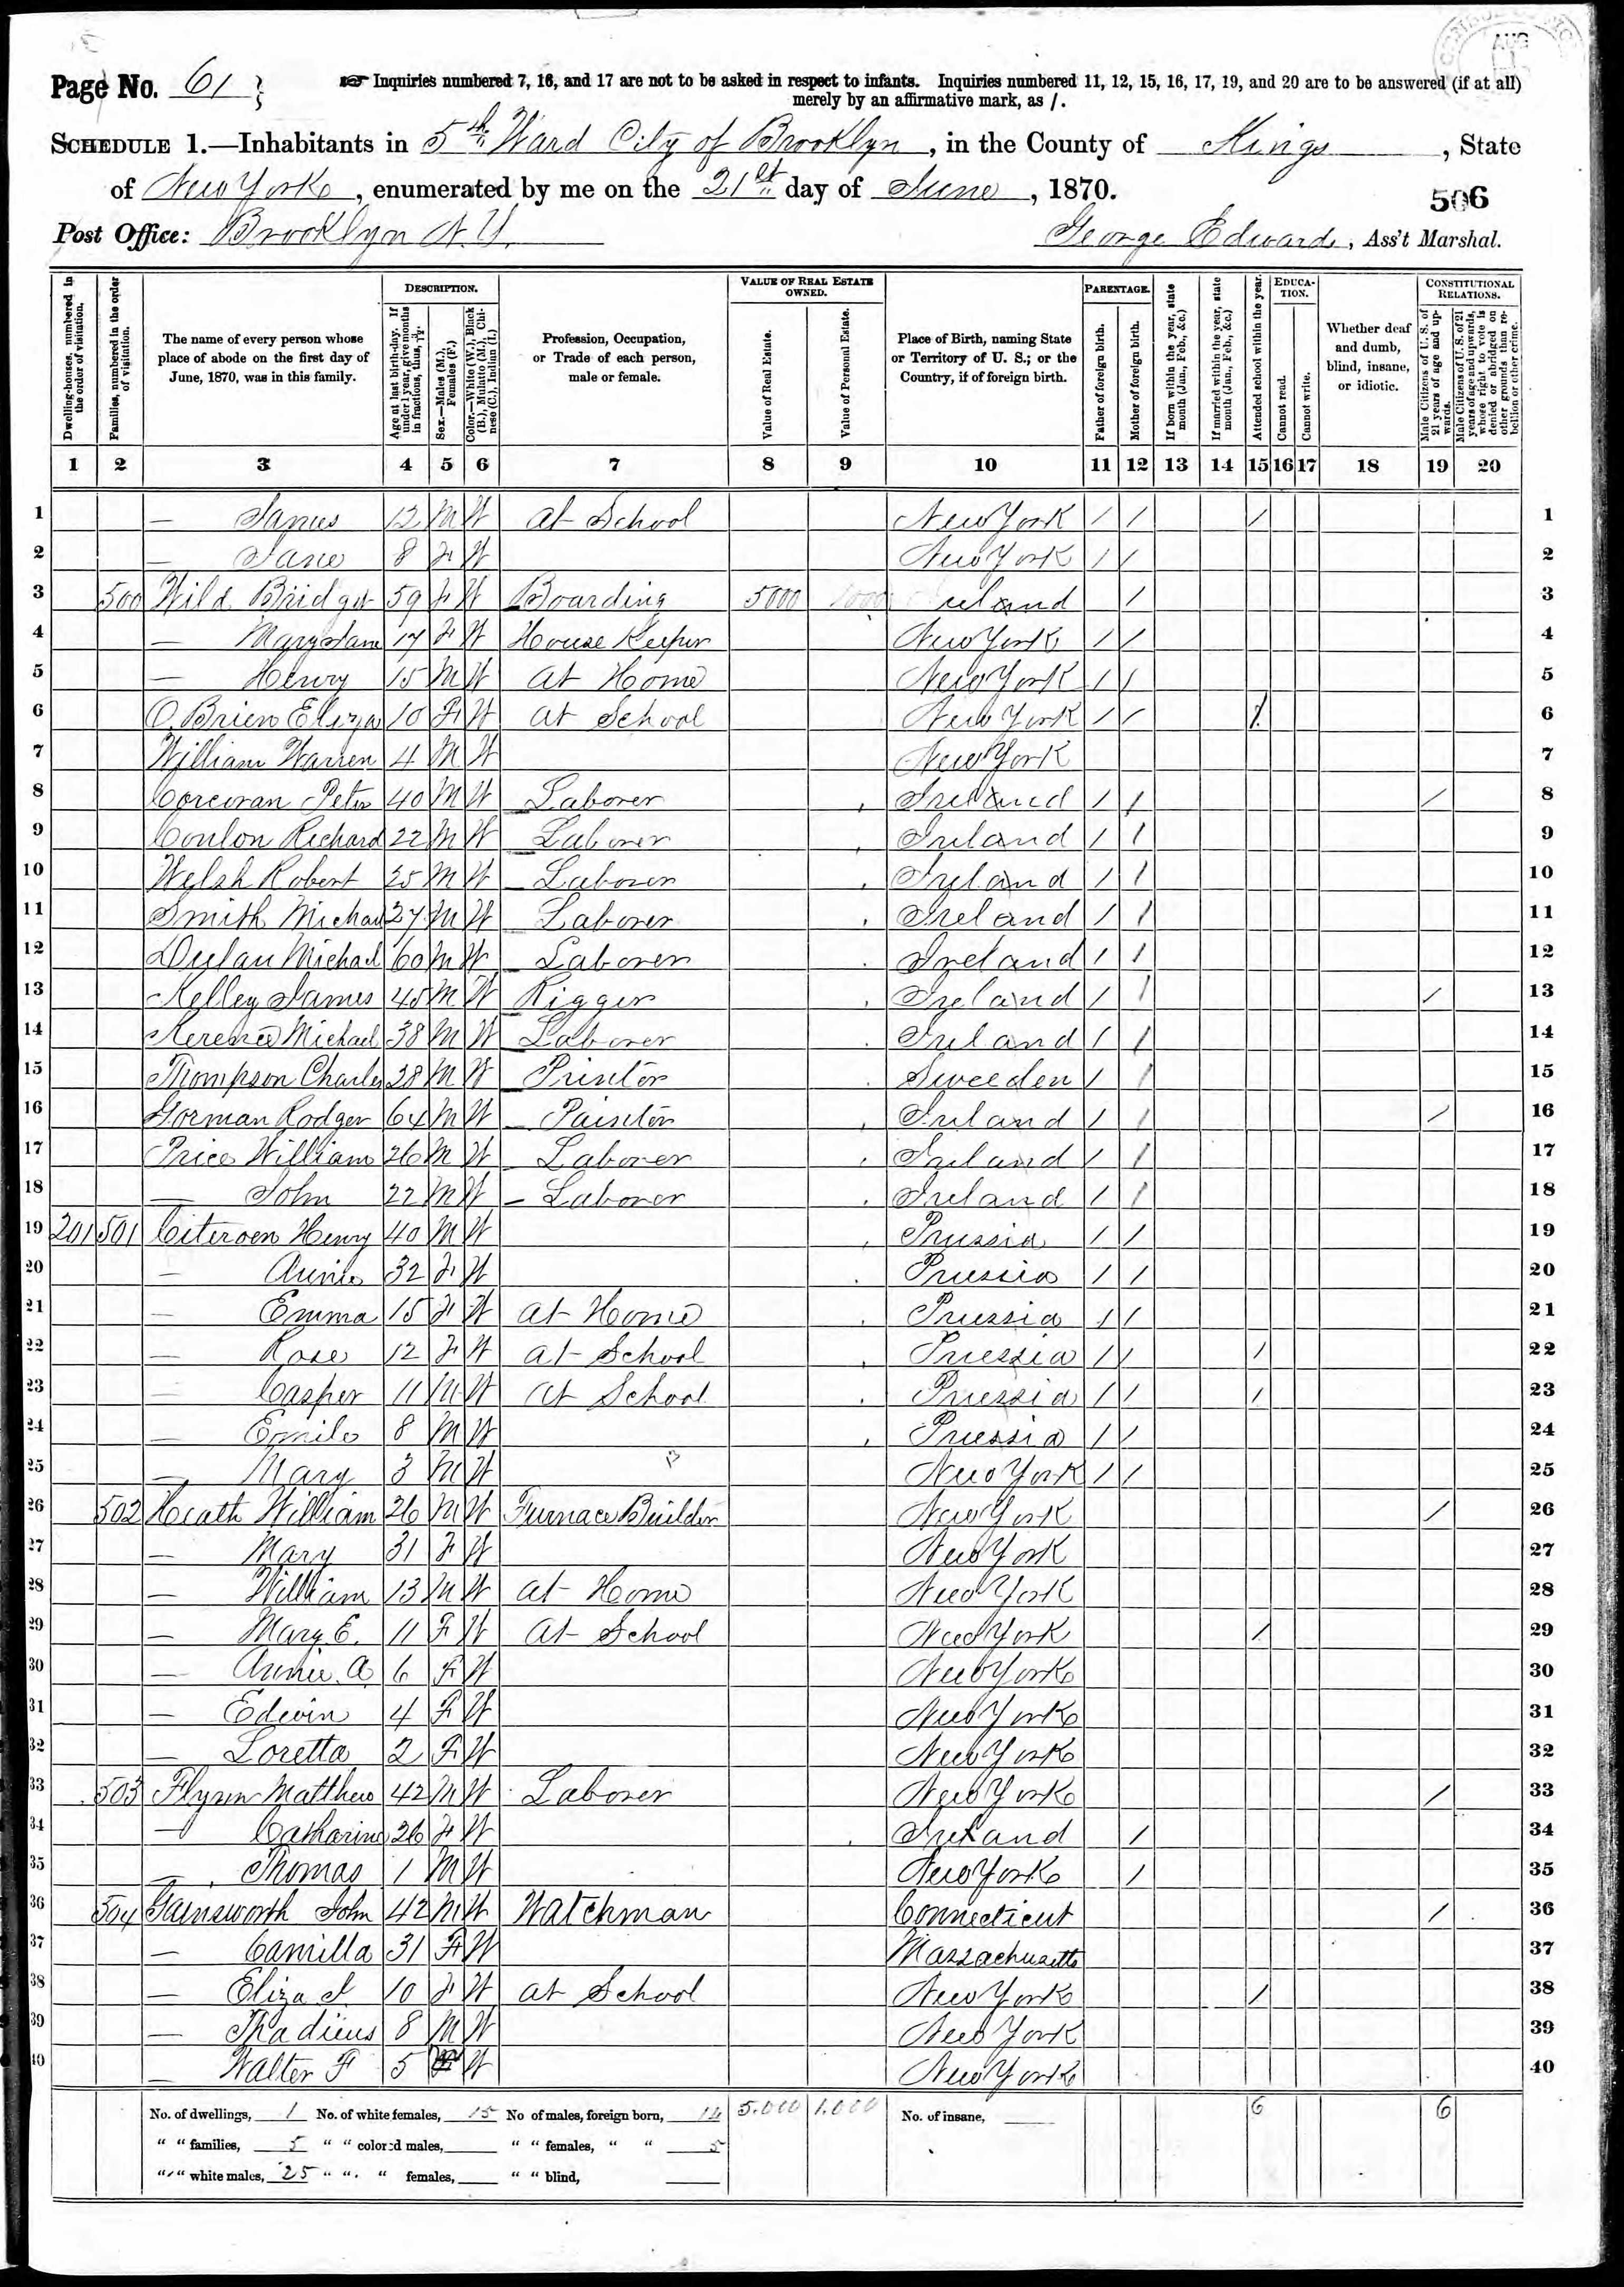 Page No. 61
Inquiries numbered 7, 16, and 17 are not to be asked in respect to infants. Inquiries numbered 11, 12, 15, 16, 17, 19, and 20 are to be answered (if at all)
merely by an affirmative mark, as /.
AUG
SCHEDULE 1.—Inhabitants in 5th Ward City of Brooklyn, in the County of Kings, State
of New York, enumerated by me on the 21st day of June, 1870.
506
Post Office: Brooklyn N.Y.
George Edwards, Ass't Marshal.
Dwelling-houses, numbered in the order of visitation.
Families, numbered in the order of visitation.
The name of every person whose place of abode on the first day of June, 1870, was in this family.
DESCRIPTION.
Age at last birth-day. If under 1 year, give months in fractions, thus,
Sex.—Males (M.), Females (F.)
Color.—White (W.), Black (B.), Mulatto (M.), Chinese (C.), Indian (I.)
Profession, Occupation, or Trade of each person, male or female.
VALUE OF REAL ESTATE OWNED.
Value of Real Estate.
Value of Personal Estate.
Place of Birth, naming State or Territory of U. S.; or the Country, if of foreign birth.
PARENTAGE.
Father of foreign birth.
Mother of foreign birth.
If born within the year, state month (Jan., Feb., &c.)
If married within the year, state month (Jan., Feb., &c.)
Attended school within the year.
EDUCATION.
Cannot read.
Cannot write.
Whether deaf and dumb, blind, insane, or idiotic.
CONSTITUTIONAL RELATIONS.
Male Citizens of U. S. of 21 years of age and upwards.
Male Citizens of U. S. of 21 years of age and upwards, whose right to vote is denied or abridged on other grounds than rebellion or other crime.
1 2 3 4 5 6 7 8 9 10 11 12 13 14 15 16 17 18 19 20
1 — James 12 M W At School New York / / / 1
2 — Jane 8 F W New York / / 2
3 500 Wild Bridget 59 F W Boarding 5000 1000 Ireland / 3
4 — Mary Jane 17 F W House Keeper New York / / 4
5 — Henry 15 M W At Home New York / / 5
6 O.Brien Eliza 10 F W At School New York / / / 6
7 William Warren 4 M W New York 7
8 Corcoran Peter 40 M W Laborer Ireland / / / 8
9 Conlon Richard 22 M W Laborer Ireland / / 9
10 Welsh Robert 25 M W Laborer Ireland / / 10
11 Smith Michael 27 M W Laborer Ireland / / 11
12 Michael 60 M W Laborer Ireland / / 12
13 Kelley James 45 M W Rigger Ireland / / / 13
14 Michael 38 M W Laborer Ireland / / 14
15 Thompson Charles 28 M W Printer Sweeden / / 15
16 Gorman Rodger 64 M W Painter Ireland / / / 16
17 Price William 26 M W Laborer Ireland / / 17
18 — John 22 M W Laborer Ireland / / 18
19 201 501 Citeroen Henry 40 M W Prussia / / 19
20 — Annie 32 F W Prussia / / 20
21 — Emma 15 F W At Home Prussia / / 21
22 — Rose 12 F W At School Prussia / / / 22
23 — Casper 11 M W At School Prussia / / / 23
24 — Emile 8 M W Prussia / / 24
25 — Mary 3 M W New York / / 25
26 502 Heath William 26 M W Furnace Builder New York / 26
27 — Mary 31 F W New York 27
28 — William 13 M W At Home New York 28
29 — Mary E. 11 F W At School New York / 29
30 — Annie. A 6 F W New York 30
31 — Edwin 4 F W New York 31
32 — Loretta 2 F W New York 32
33 503 Flynn Matthew 42 M W Laborer New York / 33
34 — Catharine 26 F W Ireland / 34
35 — Thomas 1 M W New York / 35
36 504 Gainsworth John 42 M W Watchman Connecticut / 36
37 — Camilla 31 F W Massachusetts 37
38 — Eliza J 10 F W At School New York / 38
39 — Thadieus 8 M W New York 39
40 — Walter F 5 W New York 40
No. of dwellings, 1 No. of white females, 15 No of males, foreign born, 14 5.000 1.000 No. of insane, 6 6
" " families, 5 " " colored males, " " females, " " 5
" " white males, 25 " " " females, " " blind,